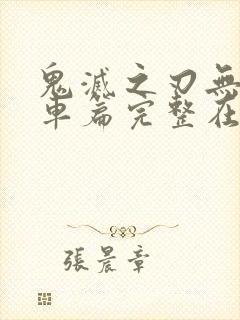 鬼滅之刃無
車篇完整在
張晨章